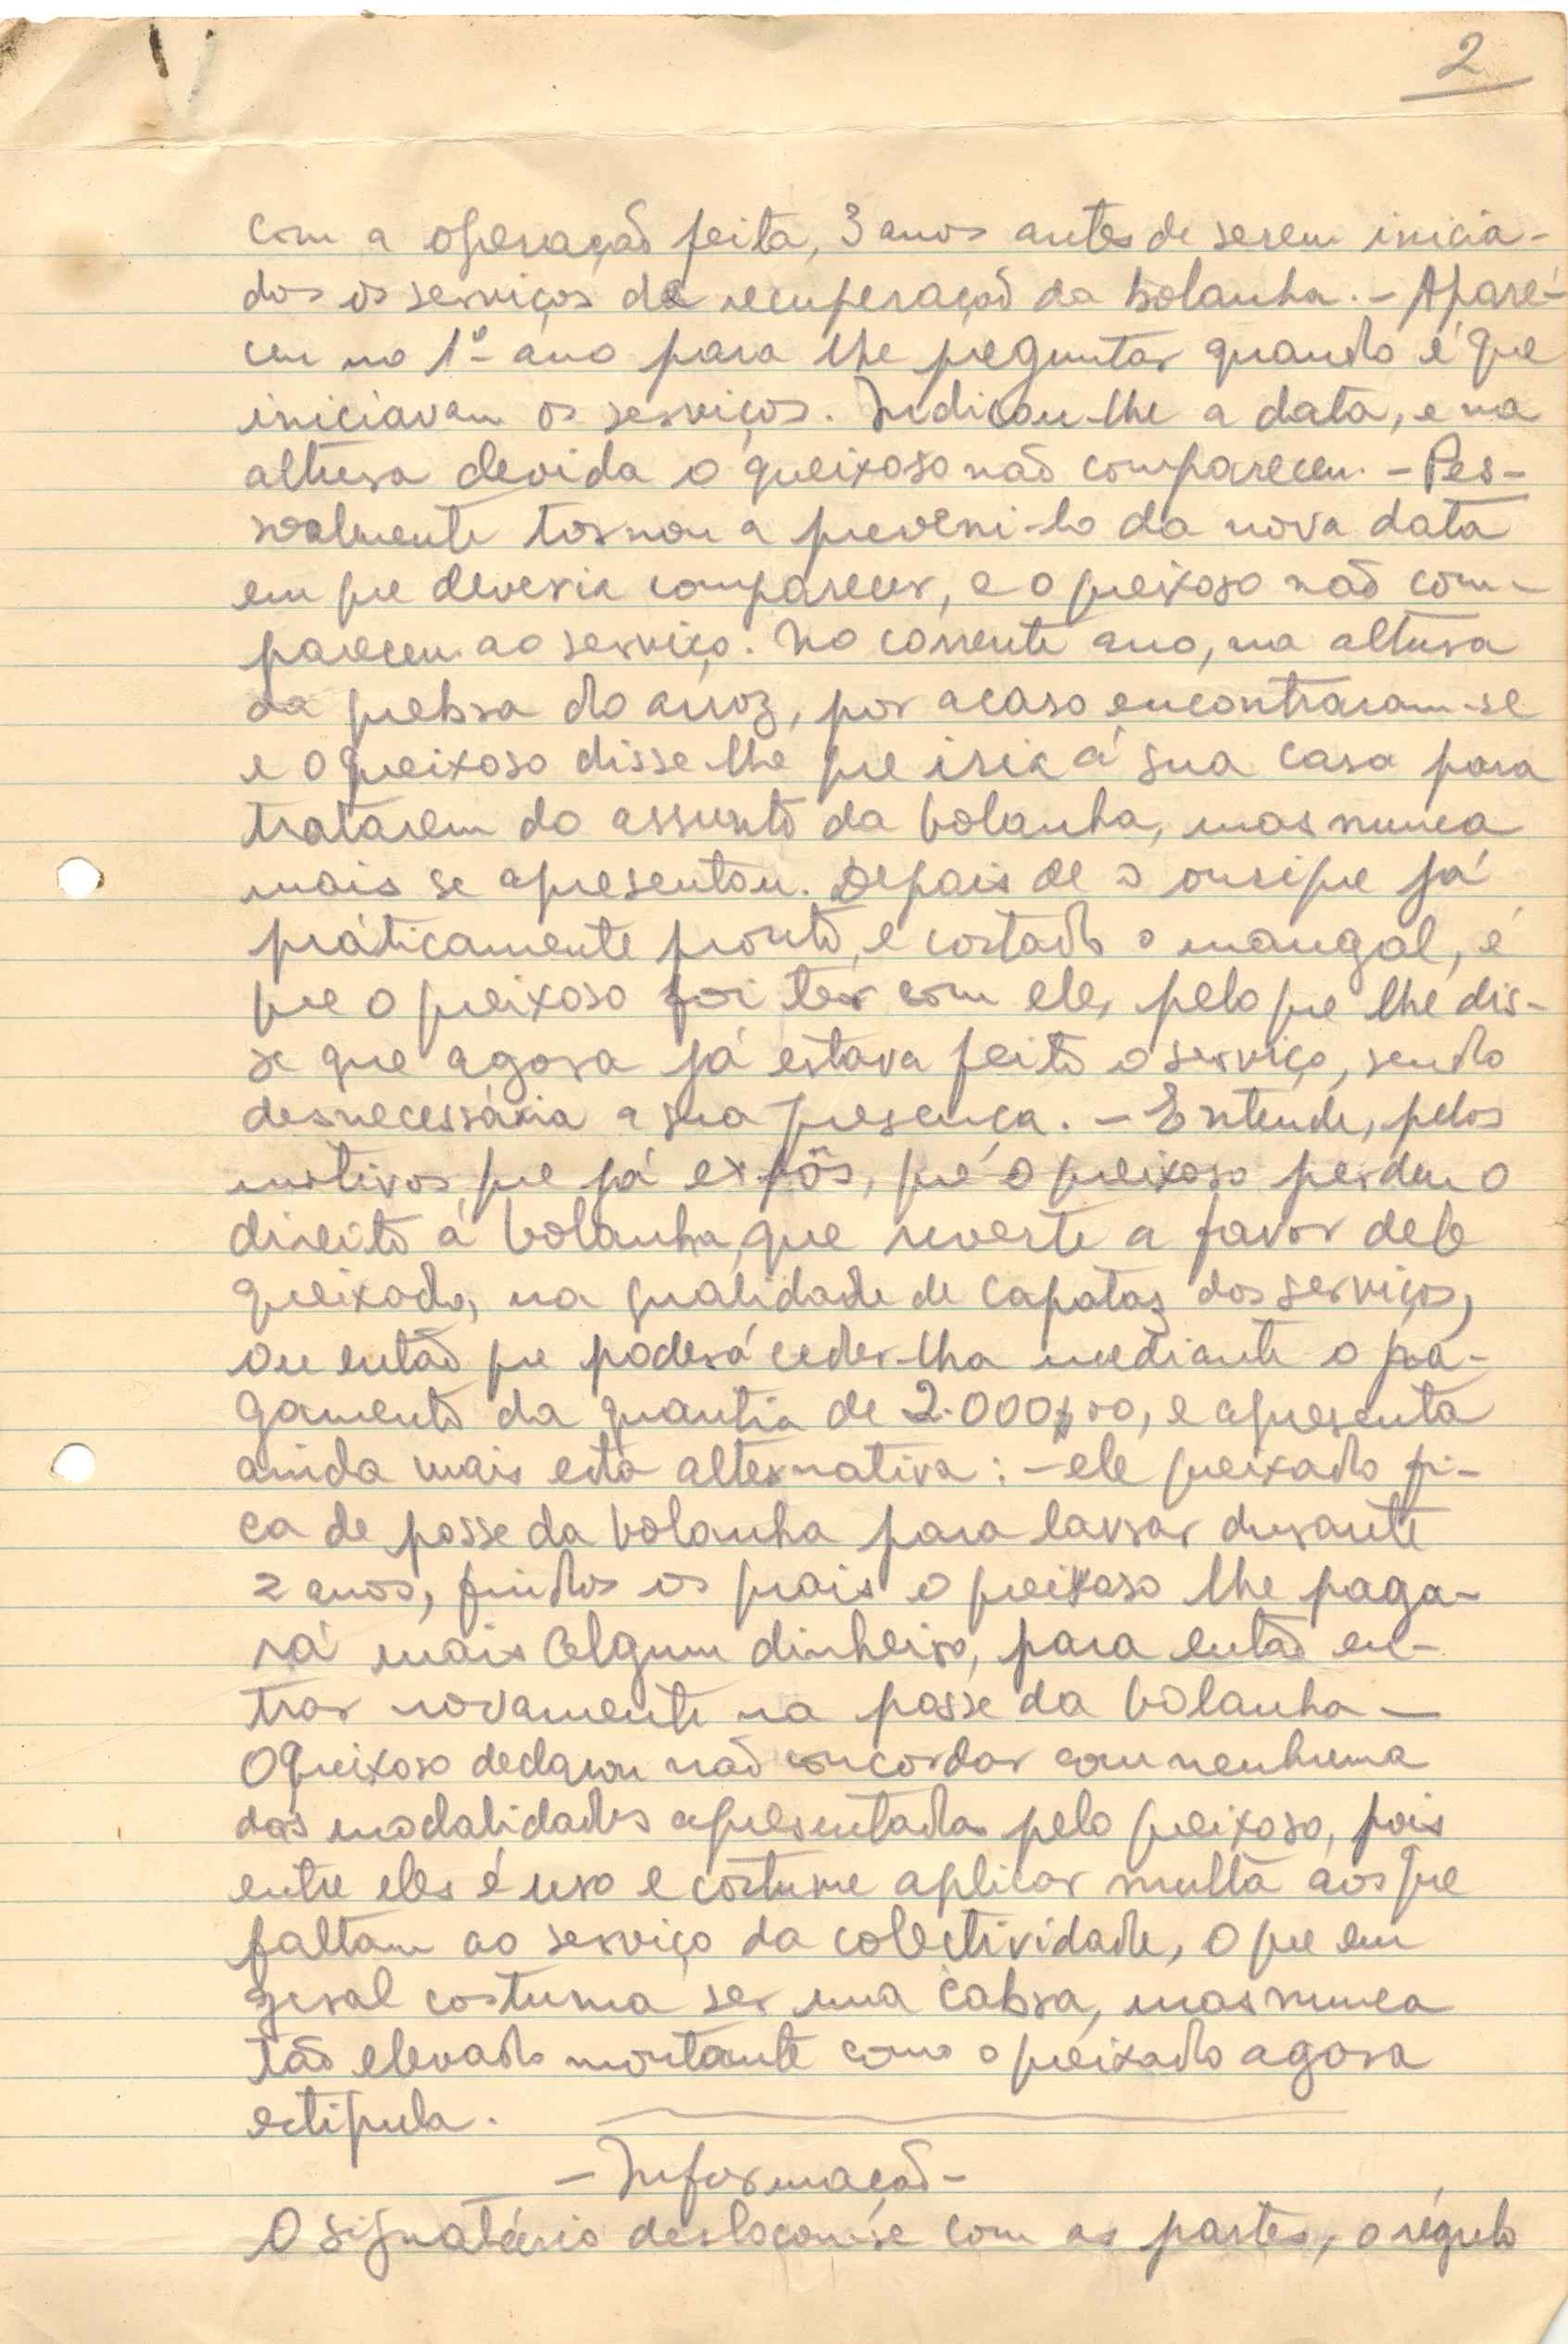 2
com a operação feita, 3 anos antes de serem inicia-
dos os serviços de recuperação da bolanha. - Apare-
ceu no 1º ano para lhe preguntar quando é que
iniciavam os serviços. Indicou-lhe a data, e na
altura devida o queixoso não compareceu. - Pes-
soalmente tornou a preveni-lo da nova data
em que deveria comparecer, e o queixoso não com-
pareceu ao serviço. No corrente ano, na altura
da quebra do arroz, por acaso encontraram-se
e o queixoso disse-lhe que iria á sua casa para
tratarem do assunto da bolanha, mas nunca
mais se apresentou. Depois de o ourique já
práticamente pronto, e cortado o mangal, é
que o queixoso foi ter com ele, pelo que lhe dis-
se que agora já estava feito o serviço, sendo
desnecessária a sua presença. - Entende, pelos
motivos que já expôs, que o queixoso perdeu o
direito á bolanha, que reverte a favor dele
queixado, na qualidade de capataz dos serviços,
ou então que poderá ceder-lha mediante o pa-
gamento da quantia de 2.000$00, e apresenta
ainda mais esta alternativa: - ele queixado fi-
ca de posse da bolanha para lavrar durante
2 anos, findos os quais o queixoso lhe paga-
rá mais algum dinheiro, para então en-
trar novamente na posse da bolanha —
O queixoso declarou não concordar com nenhuma
das modalidades apresentadas pelo queixoso, pois
entre eles é uso e costume aplicar multa aos que
faltam ao serviço da colectividade, o que em
geral costuma ser uma cabra, mas nunca
tão elevado montante como o queixado agora
estipula.
- Informação -
O signatário deslocou-se com as partes, o régulo